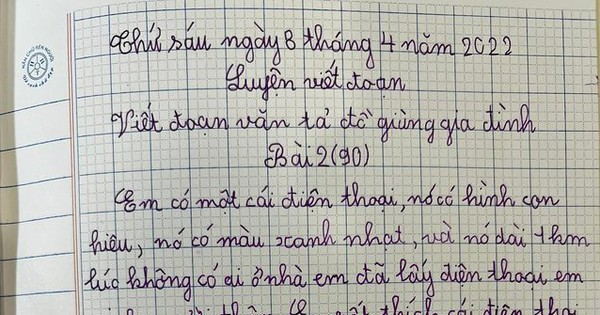 Thứ sáu ngày 8 tháng 4 năm 2022
Luyện viết đoạn
Viết đoạn văn tả đồ giùng gia đình
Bài 2 (90)
Em có một cái điện thoại, nó có hình con
hiêu, nó có màu xanh nhạt, và nó dài
lúc không có ai ở nhà em đã lấy điện thoại em
thích cái điện thoại